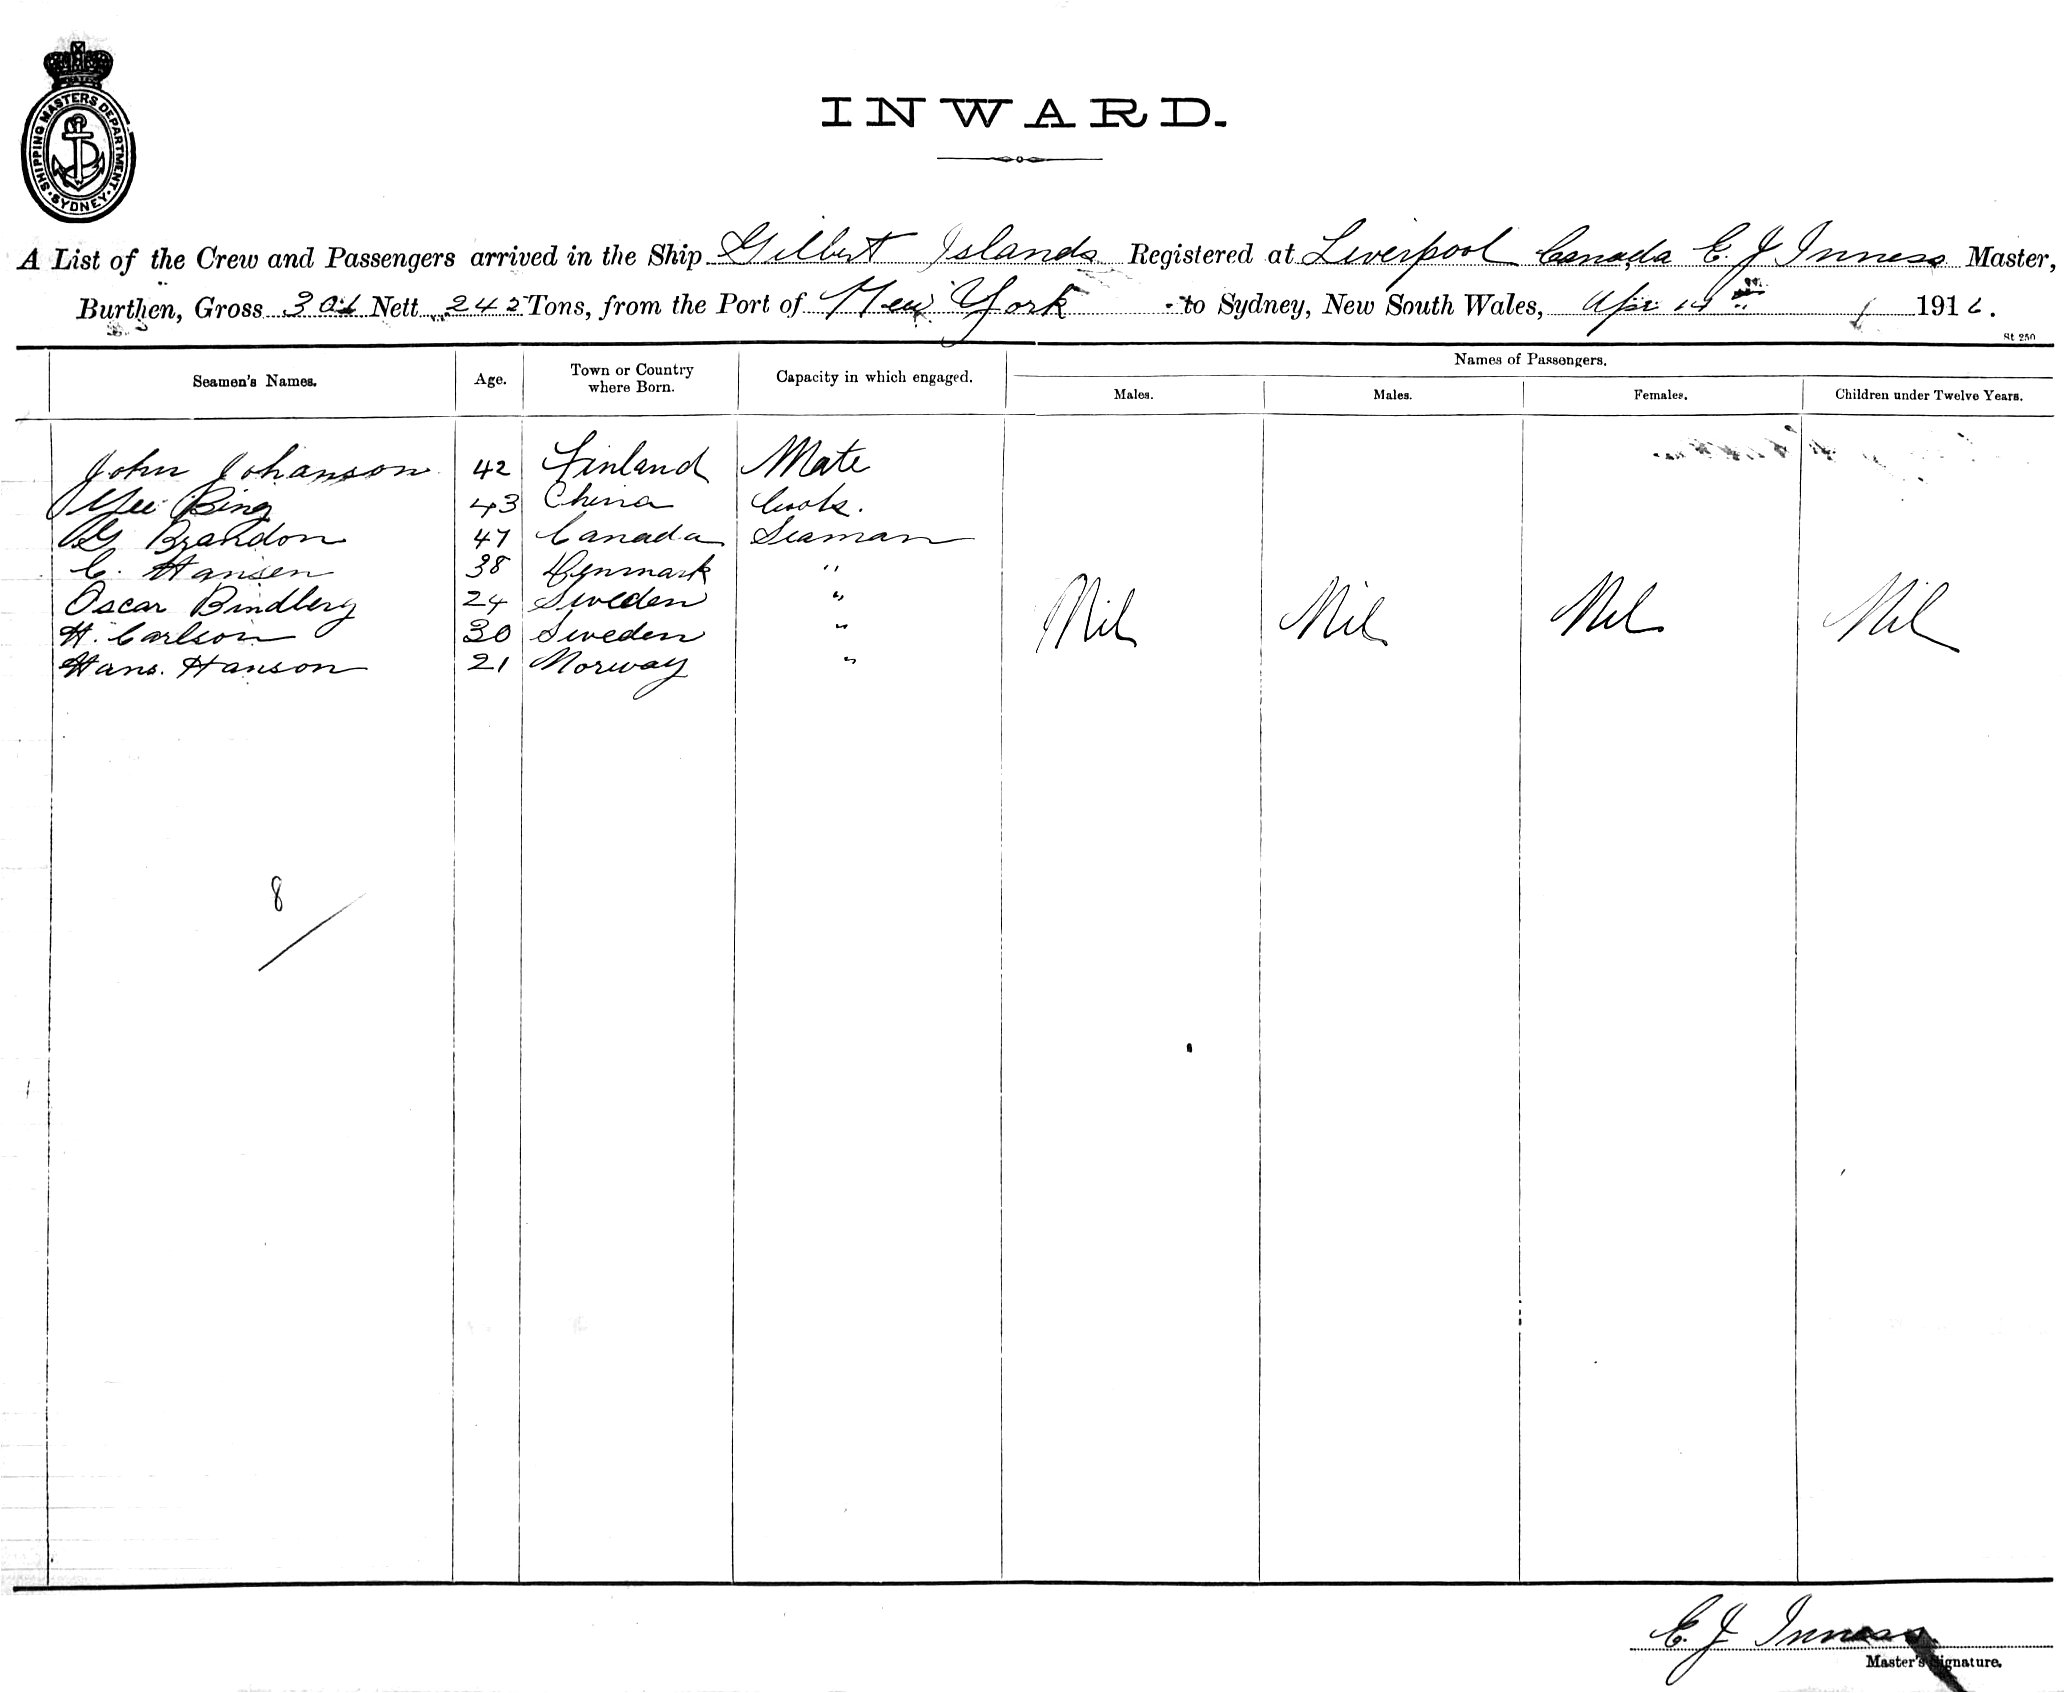 SHIPPING MASTERS DEPARTMENT · SYDNEY ·
INWARD.
A List of the Crew and Passengers arrived in the Ship Gilbert Islands Registered at Liverpool Canada E. J Inness Master,
Burthen, Gross Nett 242 Tons, from the Port of New York to Sydney, New South Wales, Apr 14th 1916.
St 250
Seamen's Names. Age. Town or Country where Born. Capacity in which engaged. Names of Passengers.
Males. Males. Females. Children under Twelve Years.
John Johanson 42 Finland Mate
Yee Bing 43 China Cook.
G Brandon 47 Canada Seaman
C. Hansen 38 Denmark "
Oscar Bindberg 24 Sweden "
H. Carlson 30 Sweden "
Hans. Hanson 21 Norway "
Nil Nil Nil Nil
8
E. J Inness.
Master's Signature.